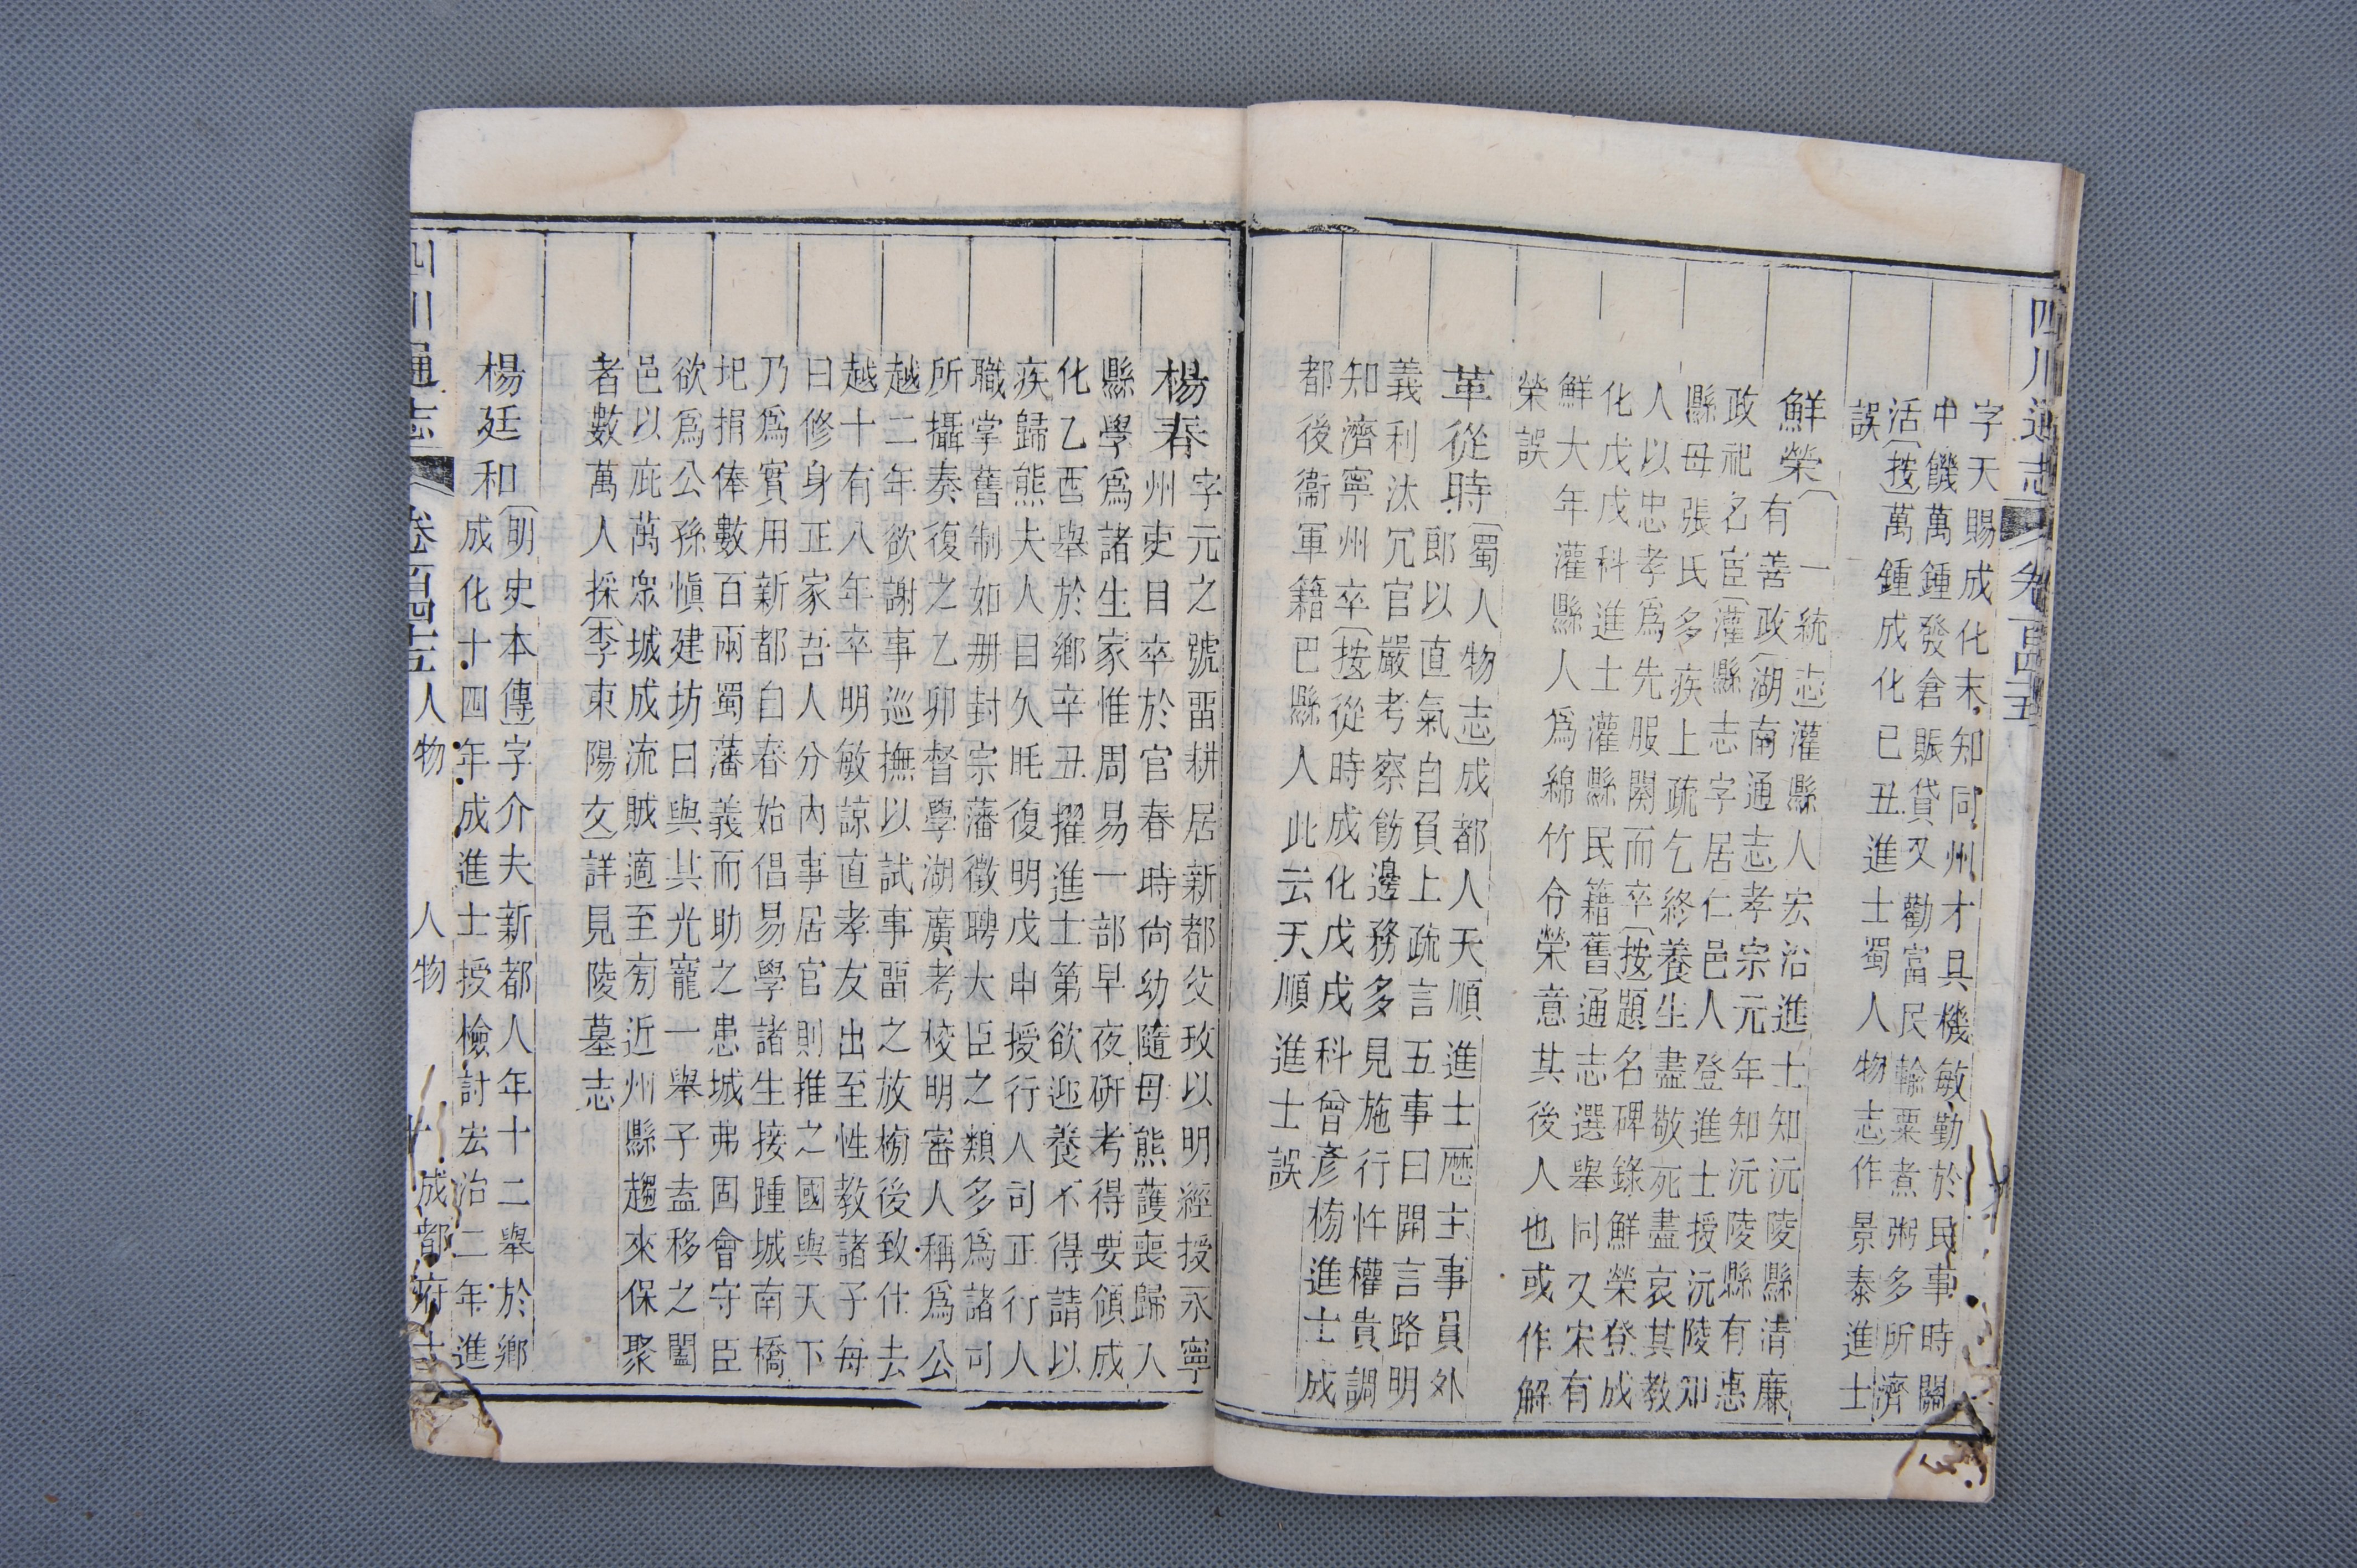 四川通志 卷一百四十五
字天賜成化末知同州才具機敏勤於民事時關
中饑萬鍾發倉賑貸又勸富民輸粟煮粥多所濟
活〔按〕萬鍾成化已丑進士蜀人物志作景泰進士
誤
鮮榮〔一統志〕灌縣人宏治進士知沅陵縣清廉
有善政〔湖南通志〕孝宗元年知沅陵縣有惠
政祀名臣〔灌縣志〕字居仁邑人登進士授沅陵知
縣母張氏多疾上疏乞終養生盡敬死盡哀其教
人以忠孝爲先服闋而卒〔按〕題名碑錄鮮榮登成
化戊戌科進士灌縣民籍舊通志選舉同又宋有
鮮大年灌縣人爲綿竹令榮意其後人也或作解
榮誤
革從時〔蜀人物志〕成都人天順進士歷主事員外
郎以直氣自負上疏言五事曰開言路明
義利汰冗官嚴考察飭邊務多見施行忤權貴調
知濟寧州卒〔按〕從時成化戊戌科曾彥榜進士成
都後衞軍籍巴縣人此云天順進士誤
楊春字元之號畱耕居新都父玫以明經授永寧
州吏目卒於官春時尙幼隨母熊護喪歸入
縣學爲諸生家惟周易一部早夜硏考得要領成
化乙酉舉於鄉辛丑擢進士第欲迎養不得請以
疾歸熊夫人目久眊復明戊申授行人司正行人
職掌舊制如册封宗藩徵聘大臣之類多爲諸司
所攝奏復之乙卯督學湖廣考校明審人稱爲公
越二年欲謝事巡撫以試事畱之放榜後致仕去
越十有八年卒明敏諒直孝友出至性教諸子每
曰修身正家吾人分內事居官則推之國與天下
乃爲實用新都自春始倡易學諸生接踵城南橋
圯捐俸數百兩蜀藩義而助之患城弗固會守臣
欲爲公孫愼建坊曰與其光寵一舉子盍移之闔
邑以庇萬衆城成流賊適至旁近州縣趨來保聚
者數萬人採〔李東陽文〕詳見陵墓志
楊廷和〔明史本傳〕字介夫新都人年十二舉於鄉
成化十四年成進士授檢討宏治二年進
四川通志 卷一百四十五 人物 人物 十 成都府士